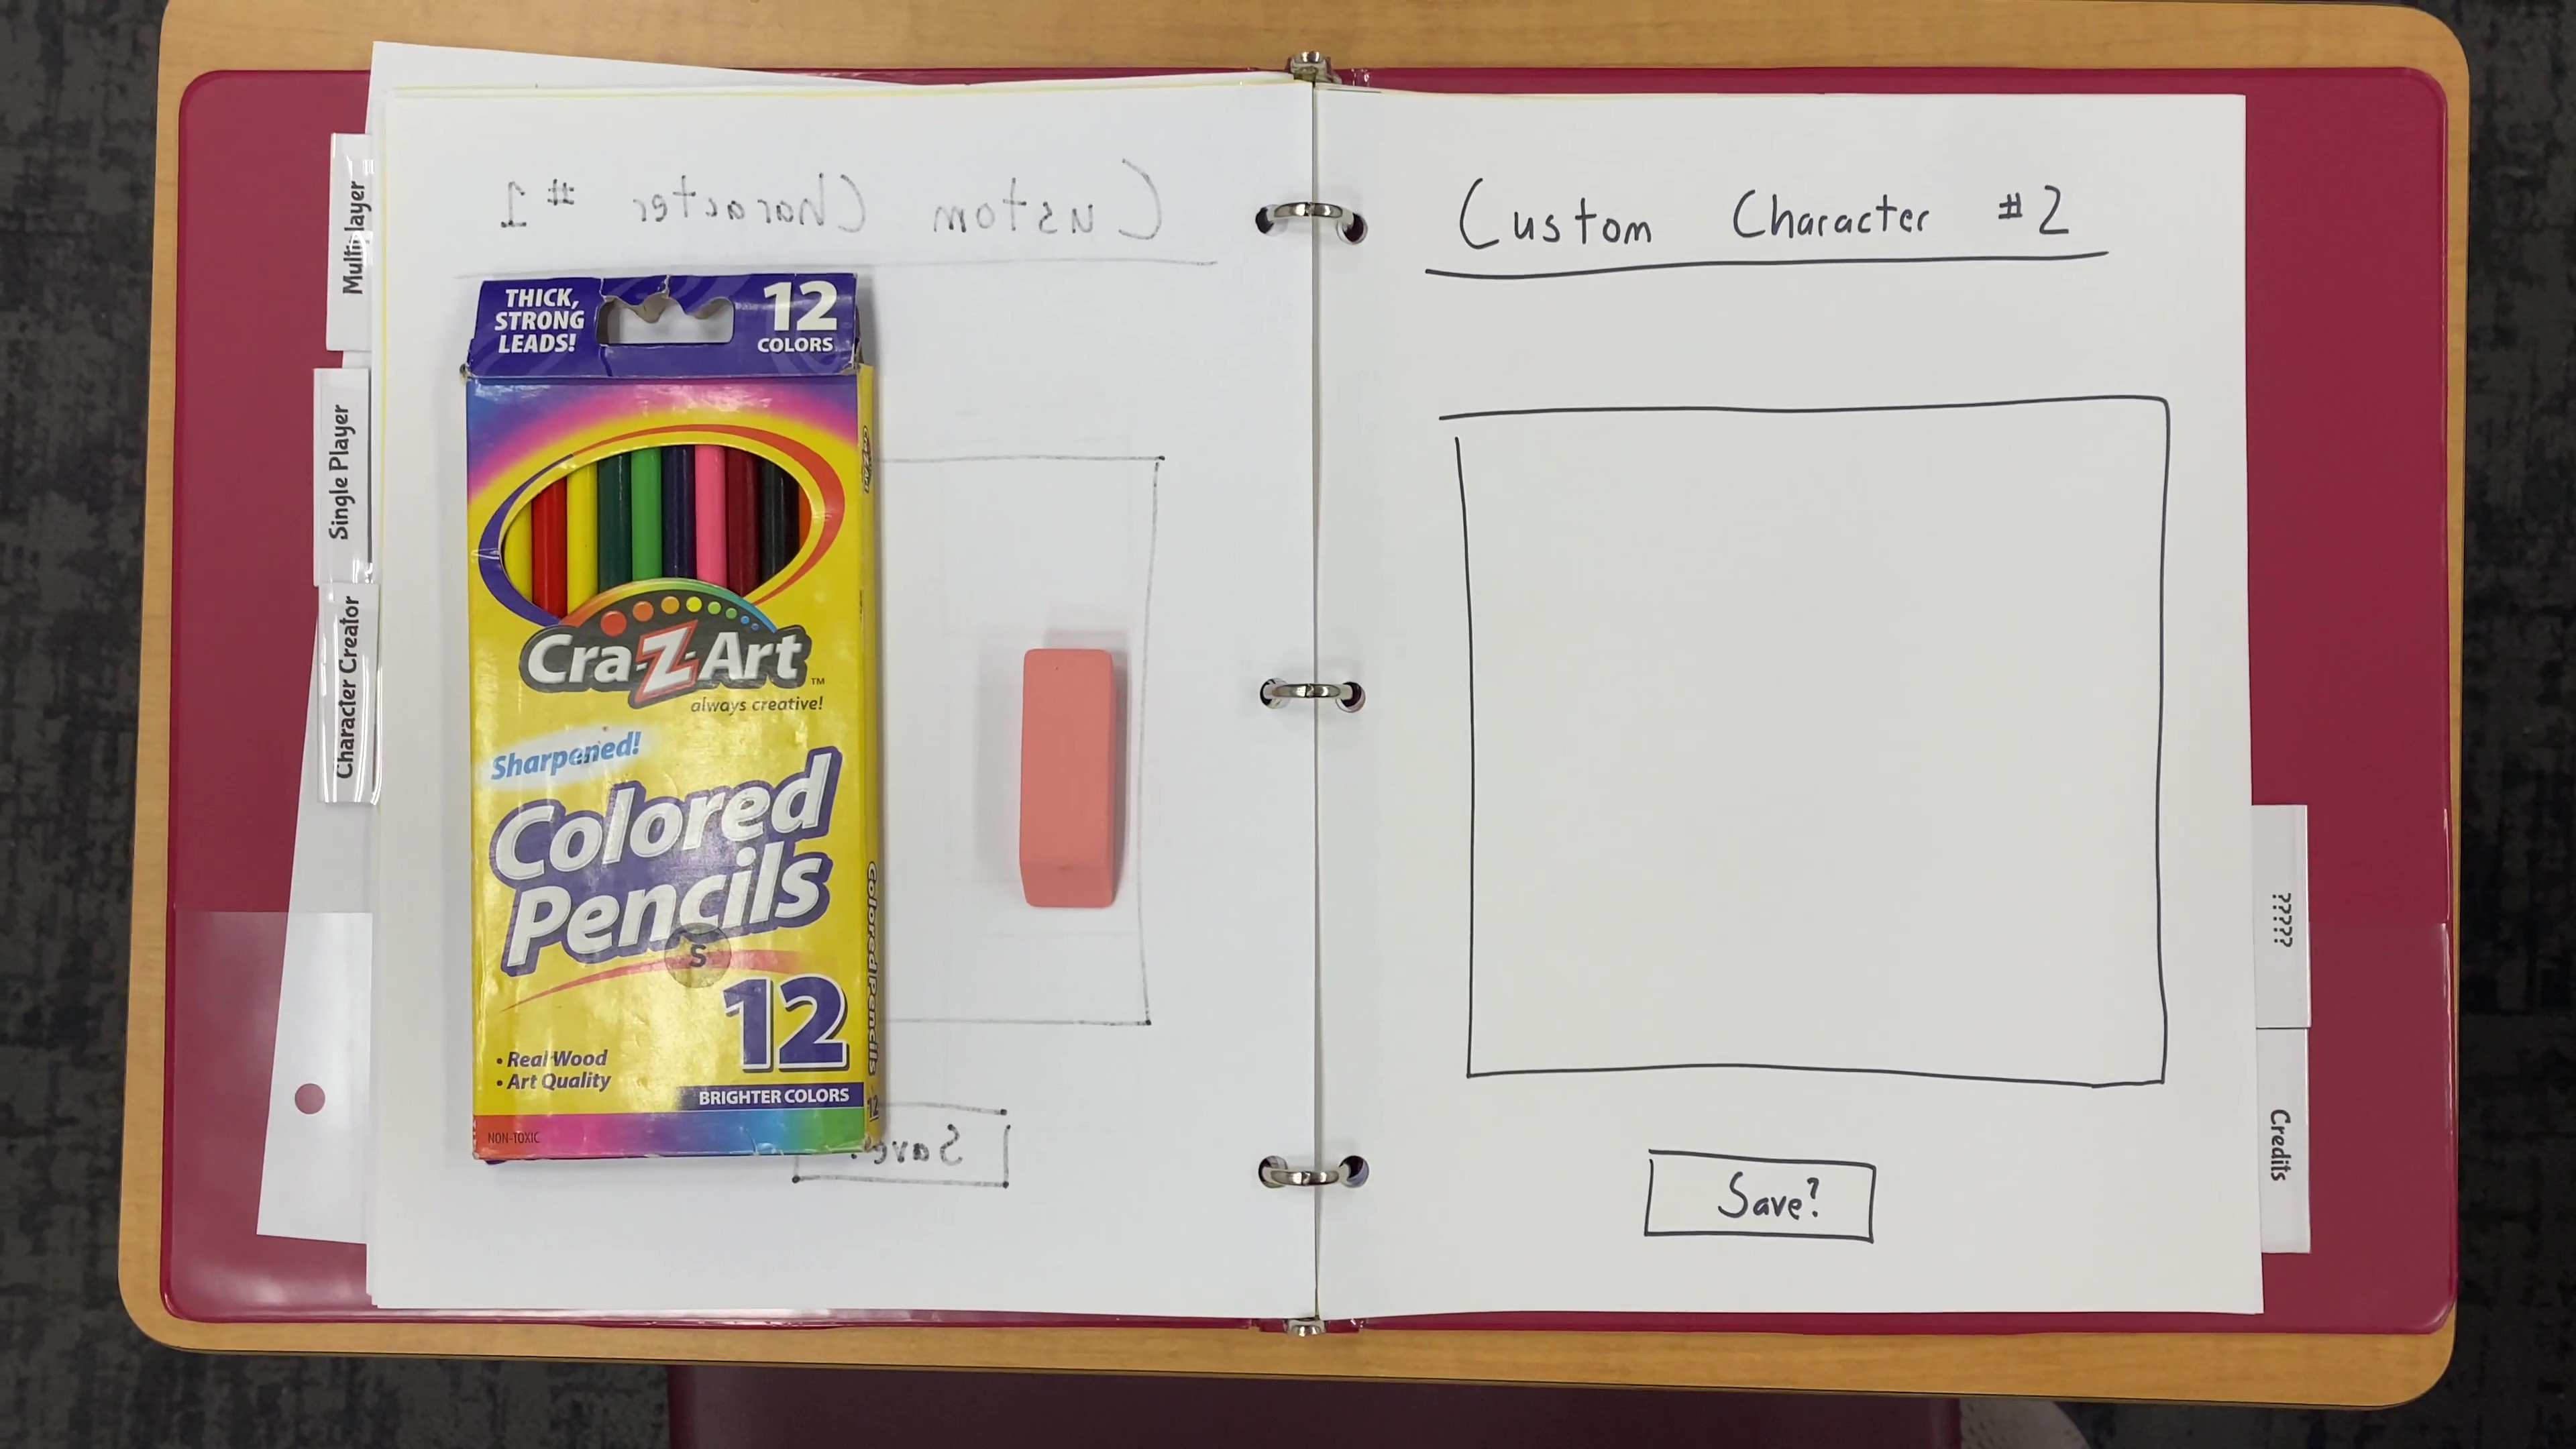 Multiplayer
Single Player
Character Creator
Custom Character #1
THICK,
STRONG
LEADS!
12
COLORS
Cra-Z-Art
Cra-Z-Art™
always creative!
Sharpened!
Colored
Pencils
S
12
• Real Wood
• Art Quality
BRIGHTER COLORS
NON-TOXIC
Colored Pencils
12
Save?
Custom Character #2
Save?
?????
Credits